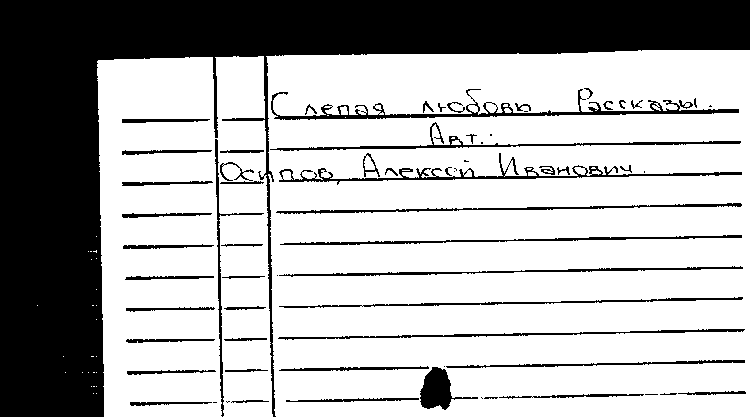 Слепая любовь. Рассказы.
Авт.:
Осипов, Алексей Иванович.